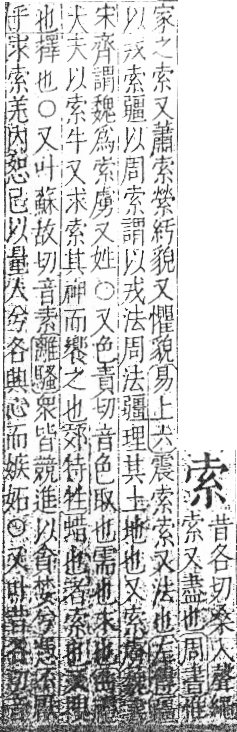 索
昔各切桑入聲繩
索又盡也周書惟
家之索又蕭索縈紆貌又懼貌易上六震索索又法也左傳疆
以戎索疆以周索謂以戎法周法疆理其土地也又索虜
宋齊謂魏爲索虜又姓○又色責切音色取也需也求也
大夫以索牛又求索其神而饗之也郊特牲蜡也者索也
也擇也○又叶蘇故切音素離騷衆皆競進以貪婪兮憑不猒
乎求索羌内恕己以量人兮各與心而嫉妬○又叶昔各切音